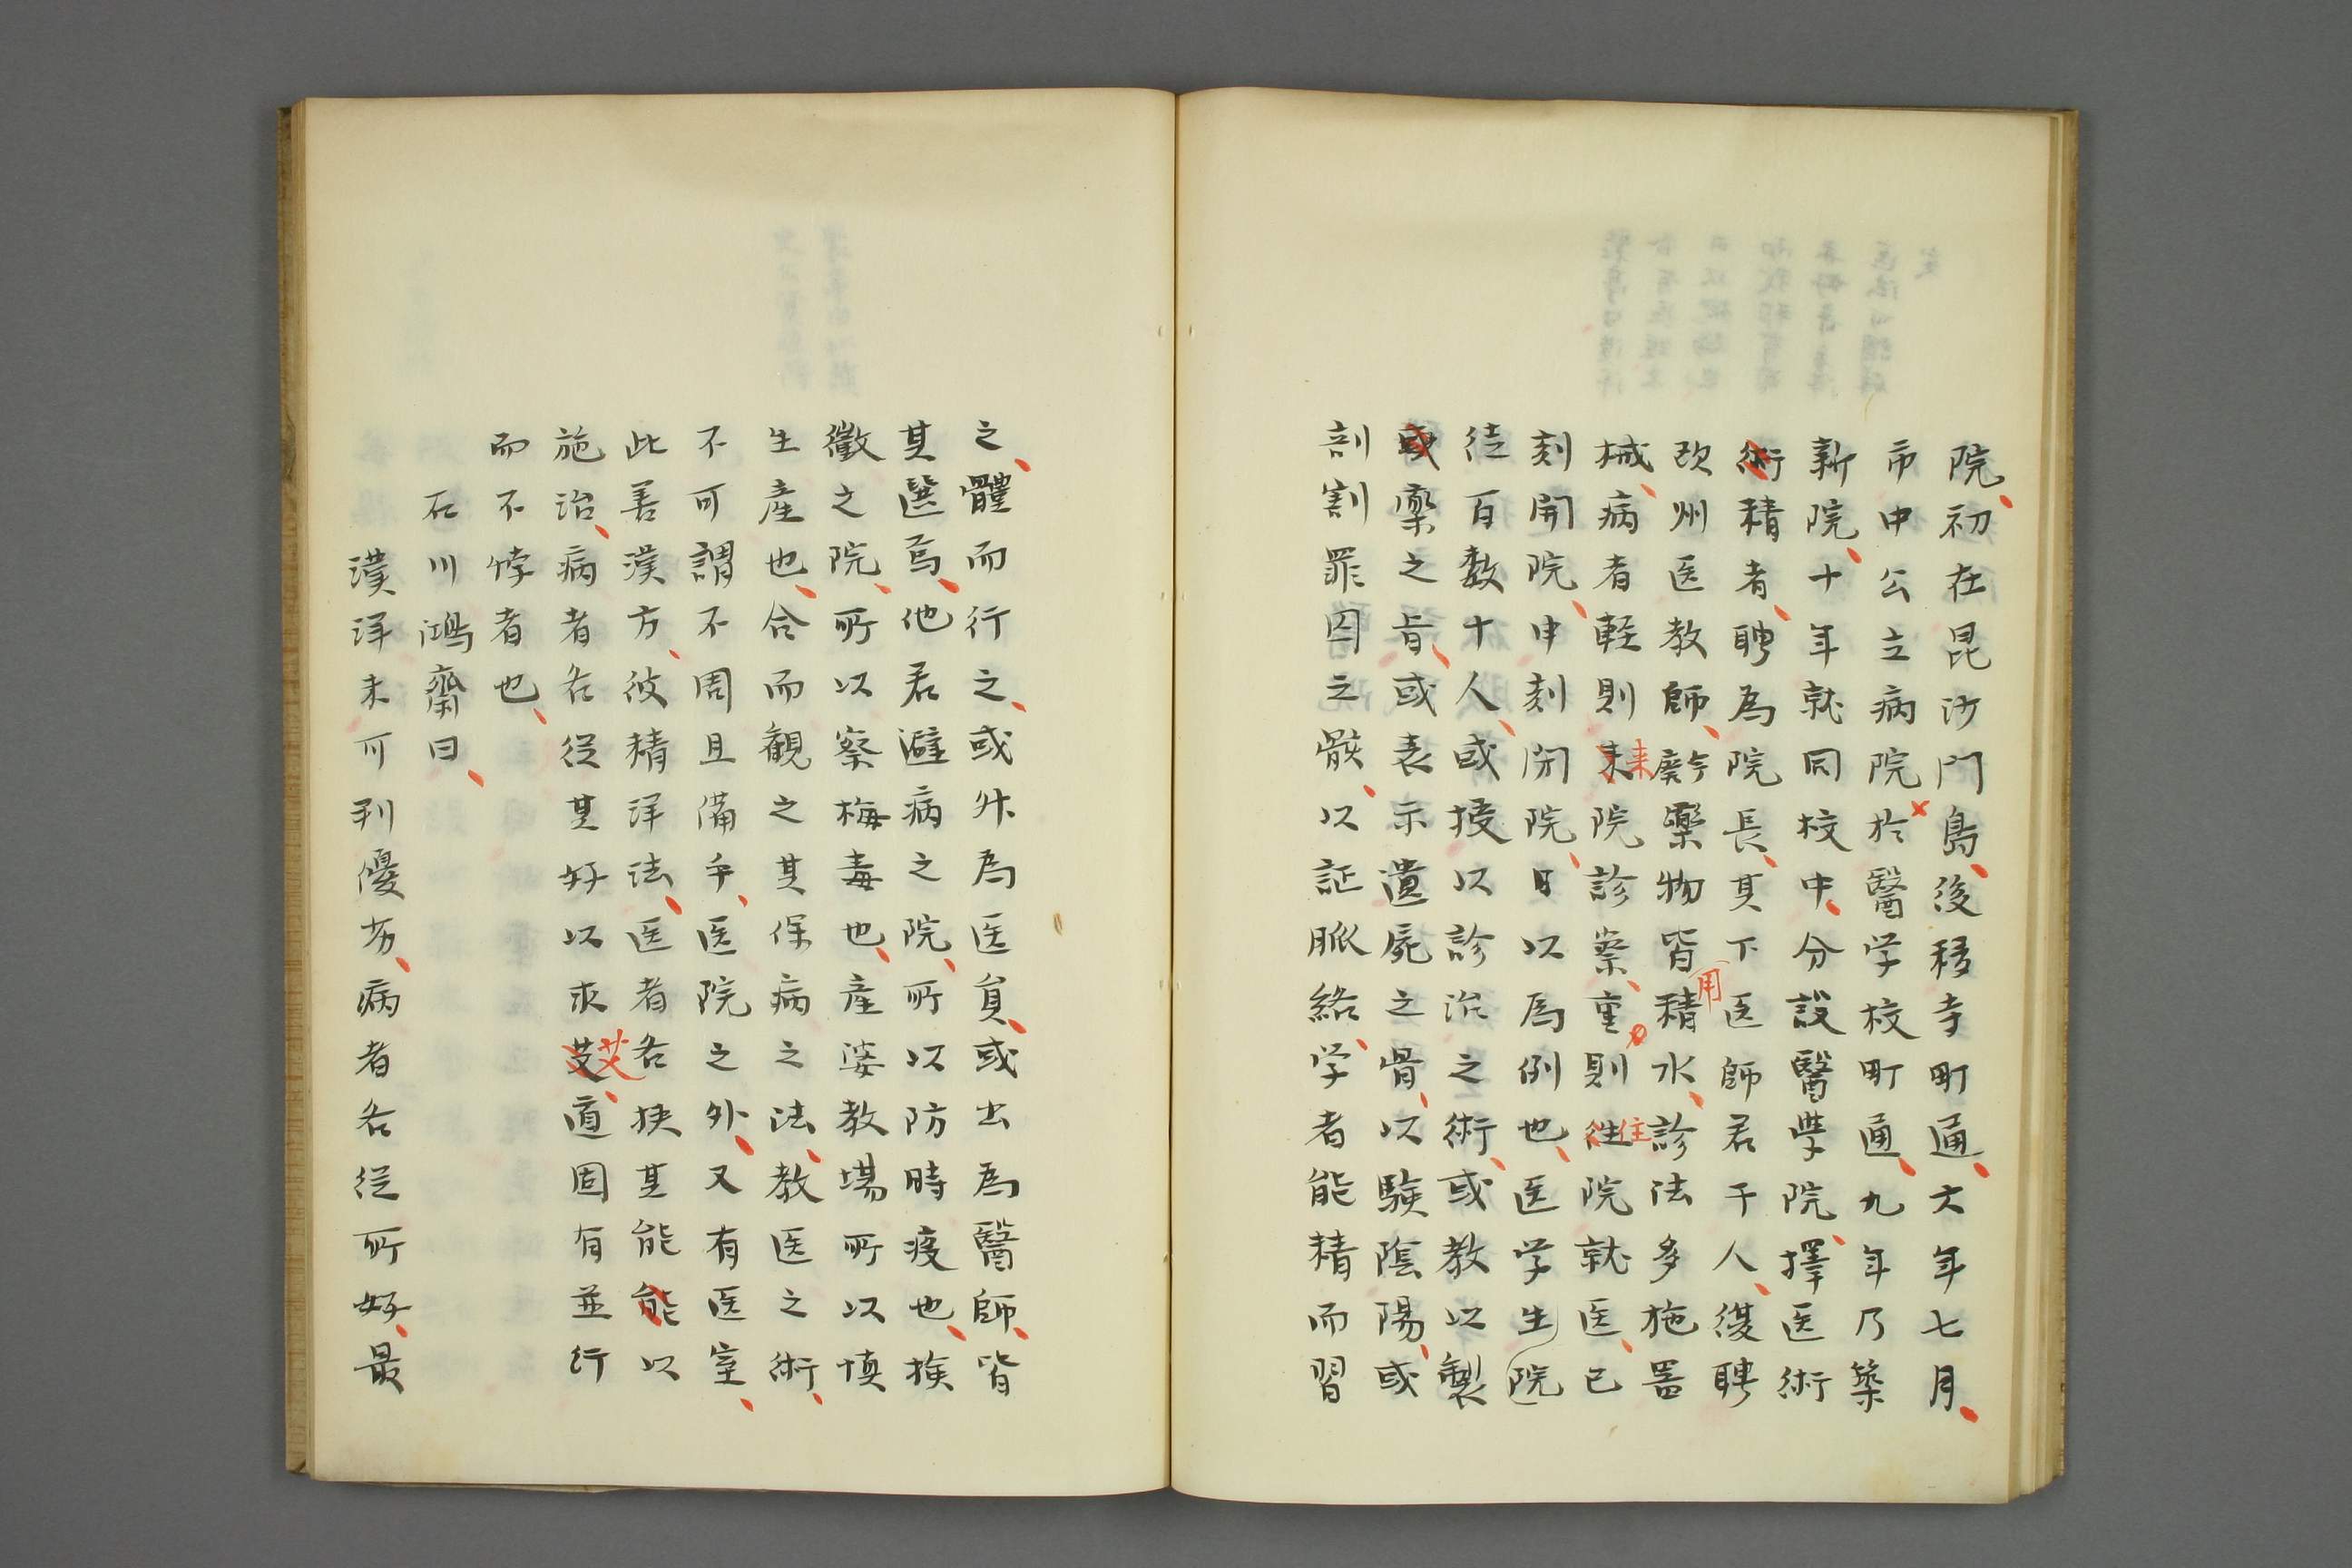 院、初在昆沙門島、後移寺町通、六年七月、
市中公立病院於醫学校町通、九年乃築
新院、十年就同校中、分設醫學院、擇医術
術精者、聘為院長、其下医師若干人、復聘
欧州医教師、齡藥物皆精用水、診法多施器
械、病者輕則未来院診察、重則往住院就医、已
刻開院、申刻閉院、日以為例也、医学生院
徒百数十人、或授以診治之術、或教以製
或藥之旨、或表示遺屍之骨、以験陰陽、或
剖割罪囚之骸、以証脈絡、学者能精而習
之、體而行之、或外為医員、或出為醫師、皆
其選焉、他若避病之院、所以防時疫也、挨
黴之院、所以察梅毒也、產婆教場所以慎
生產也、合而観之其保病之法、教医之術、
不可謂不周且備乎、医院之外、又有医室、
此善漢方、彼精洋法、医者各挟其能能以
施治、病者各從其好以求艾艾、道固有並行
而不悖者也、
石川鴻齋曰、
漢洋未可判優劣、病者各從所好、最